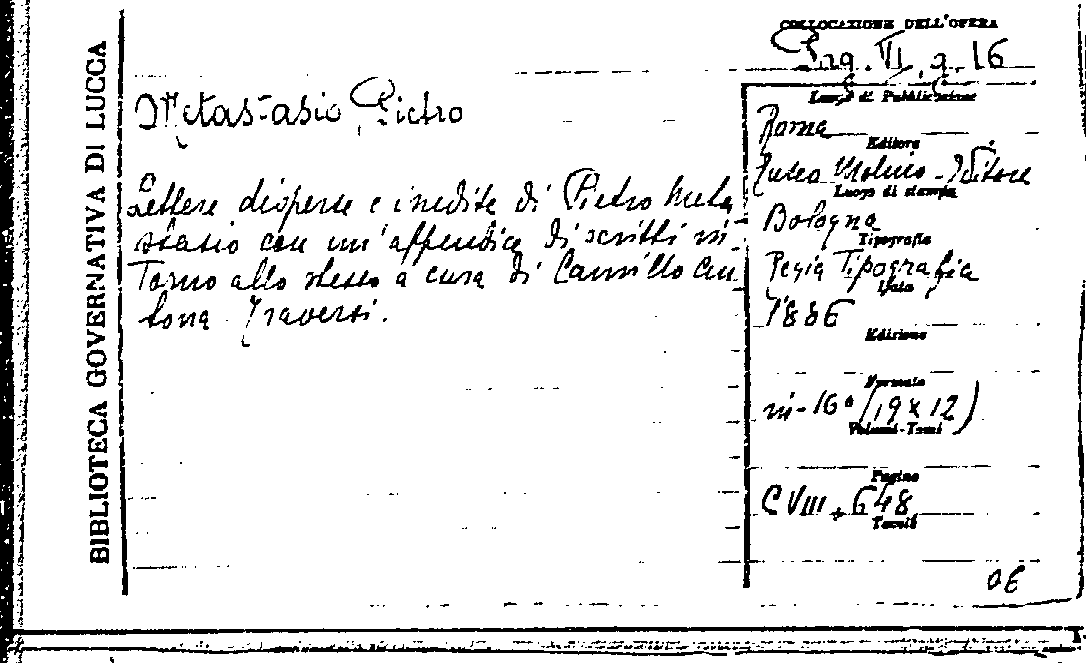 BIBLIOTECA GOVERNATIVA DI LUCCA
COLLOCAZIONE DELL'OPERA
Pag. VI. g. 16
Metastasio Pietro
Lettere disperse e inedite di Pietro Meta
stasio con un'appendice di scritti in-
torno allo stesso a cura di Camillo An
tona Traversi.
Luogo di Pubblicazione
Roma
Editore
Molino - Editore
Luogo di stampa
Bologna
Tipografia
Regia Tipografia
Data
1886
Edizione
Formato
in-16° (19 x 12)
Volumi-Tomi
Pagine
CVIII + 648
Tavole